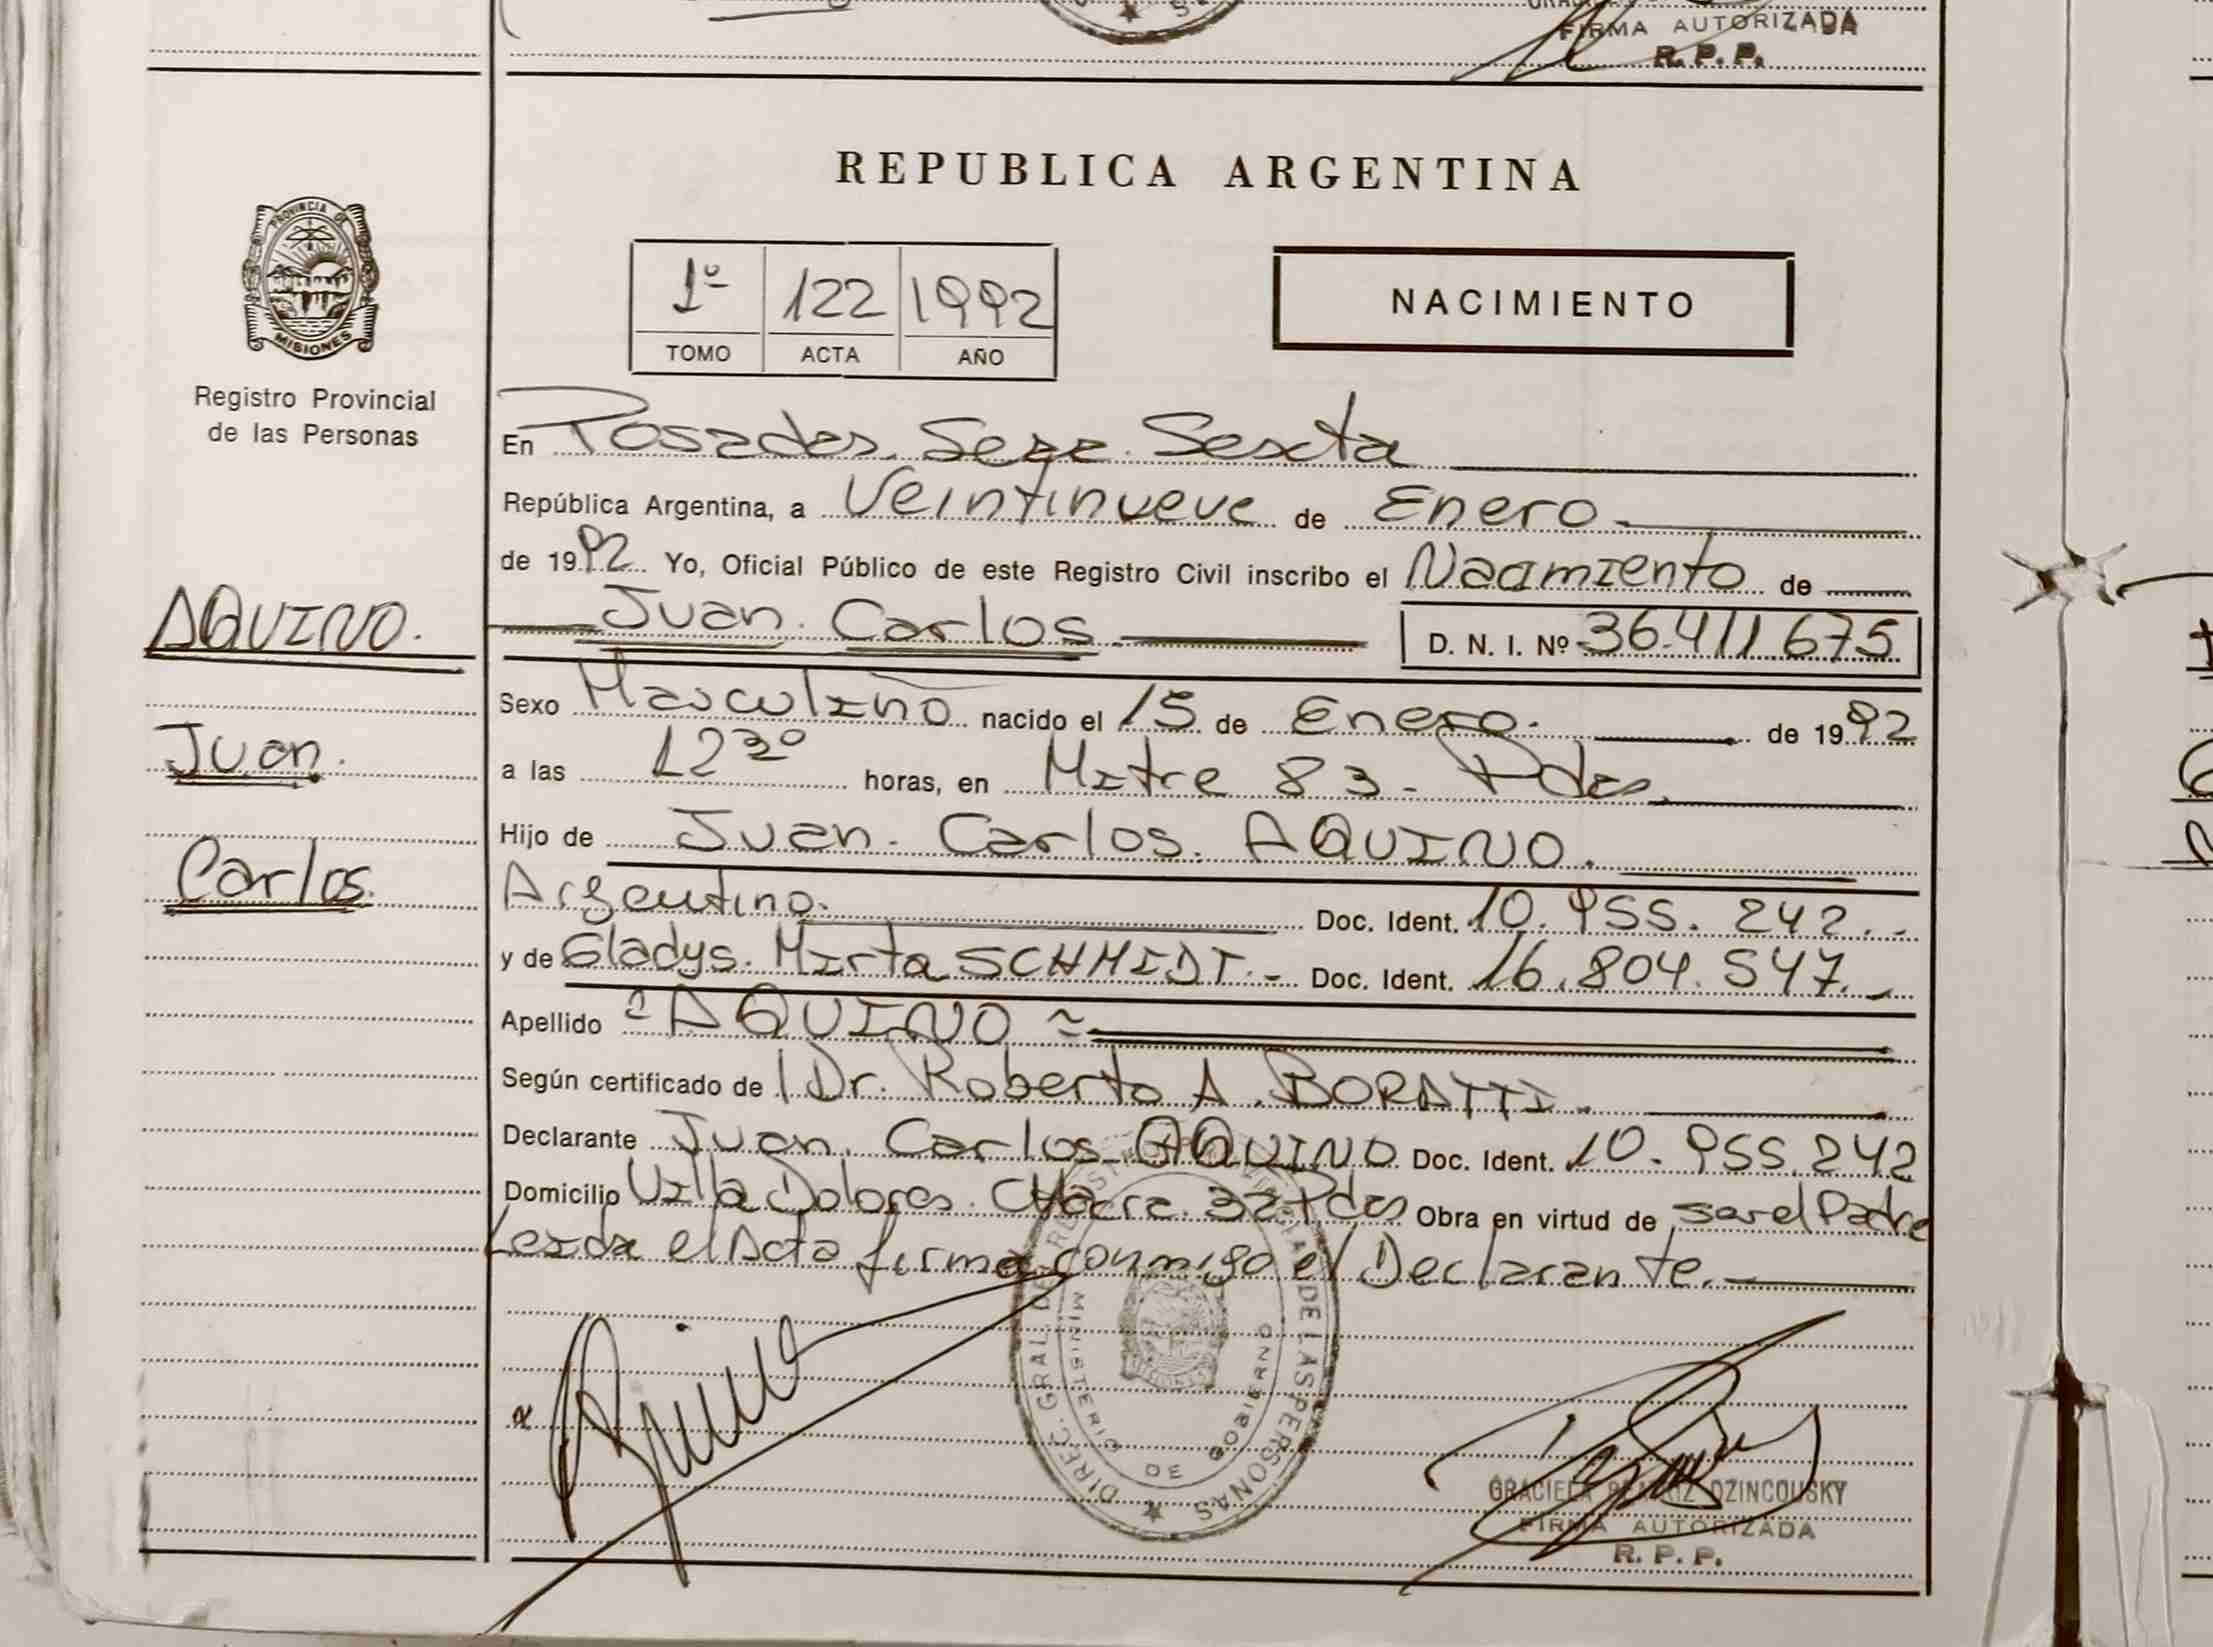 FIRMA AUTORIZADA
R. P. P.
REPUBLICA ARGENTINA
PROVINCIA DE
MISIONES
Registro Provincial
de las Personas
1º 122 1992
TOMO ACTA AÑO
NACIMIENTO
En Posadas. Secc. Sexta
República Argentina, a Veintinueve de Enero
de 1992 Yo, Oficial Público de este Registro Civil inscribo el Nacimiento de
Juan. Carlos D. N. I. Nº 36.411.675
AQUINO.
Juan.
Carlos.
Sexo Masculino nacido el 15 de Enero. de 1992
a las 12 30 horas, en Mitre 83 - Pdas.
Hijo de Juan. Carlos. AQUINO.
Argentino. Doc. Ident. 10.955.242.-
y de Gladys. Mirta SCHMIDT.- Doc. Ident. 16.804.547.-
Apellido =AQUINO=
Según certificado de l Dr. Roberto A. BORATTI.
Declarante Juan. Carlos AQUINO Doc. Ident. 10.955.242
Domicilio Villa Dolores. CHacra 32 Pdas Obra en virtud de ser el Padre
Leida el Acta firma conmigo el Declarante.-
DIREC. GRAL. DE DE LAS PERSONAS
MINISTERIO DE GOBIERNO
GRACIELA BEATRIZ DZINCOUSKY
FIRMA AUTORIZADA
R. P. P.